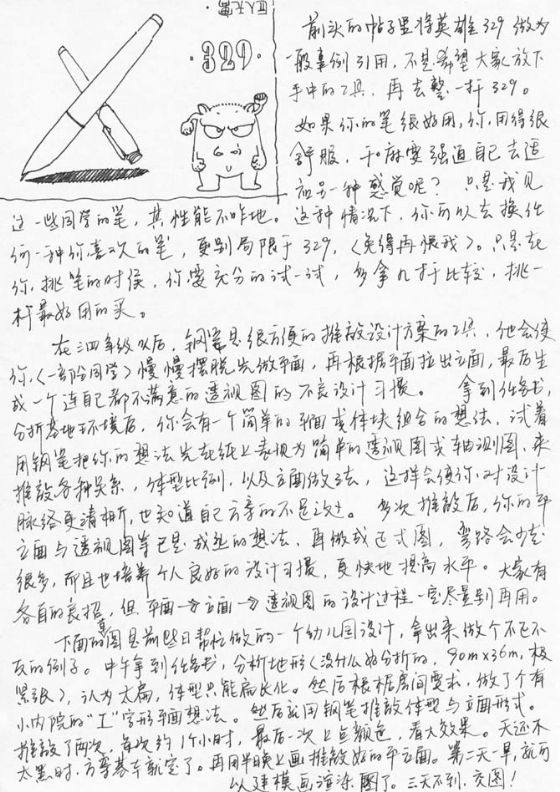 巨人无霸
·329·
前头的帖子里将英雄329做为
一般事例引用,不是希望大家放下
手中的工具,再去整一杆329。
如果你的笔很好用,你用得很
舒服,干麻要强迫自己去适
应另一种感觉呢? 只是我见
过一些同学的笔,其性能不咋地。这种情况下,你可以去换任
何一种你喜欢的笔,更别局限于329,(免得再恨我)。只是在
你挑笔的时候,你要充分的试一试,多拿几杆比较,挑一
杆最好用的买。
在三四年级以后,钢笔是很方便的推敲设计方案的工具,他会使
你(一部份同学)慢慢摆脱先做平面,再根据平面拉出立面,最后生
成一个连自己都不满意的透视图的不良设计习惯。 拿到任务书,
分析基地环境后,你会有一个简单的平面或体块组合的想法,试着
用钢笔把你的想法先在纸上表现为简单的透视图或轴测图,来
推敲各种关系,体型比例,以及立面做法,这样会使你对设计
脉络更清晰,也知道自己方案的不足之处。 多次推敲后,你的平
立面与透视图等已是成熟的想法,再做成正式图,弯路会少走
很多,而且也培养个人良好的设计习惯,更快地提高水平。大家有
各自的良招,但平面→立面→透视图的设计过程一定尽量别再用。
下面的草图是前些日帮忙做的一个幼儿园设计,拿出来做个不已不
友的例子。中午拿到任务书,分析地形(没什么好分析的,90m×36m,极
紧张),认为太扁,体型只能扁长化。然后根据房间要求,做了个有
小内院的“工”字形平面想法。然后就用钢笔推敲体型与立面形式。
推敲了两次,每次约1个小时,最后一次上色颜色,看大效果。天还不
太黑时,方案基本就定了。再用半晚上画推敲好的平立面。第二天一早,就可
以建模画渲染图了。三天不到,交图!